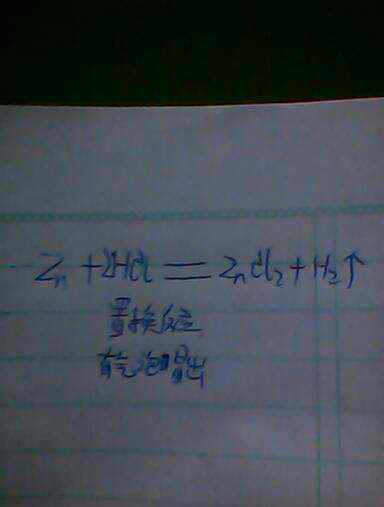 Zn + 2HCl = ZnCl₂ + H₂↑
置换反应
有气泡冒出